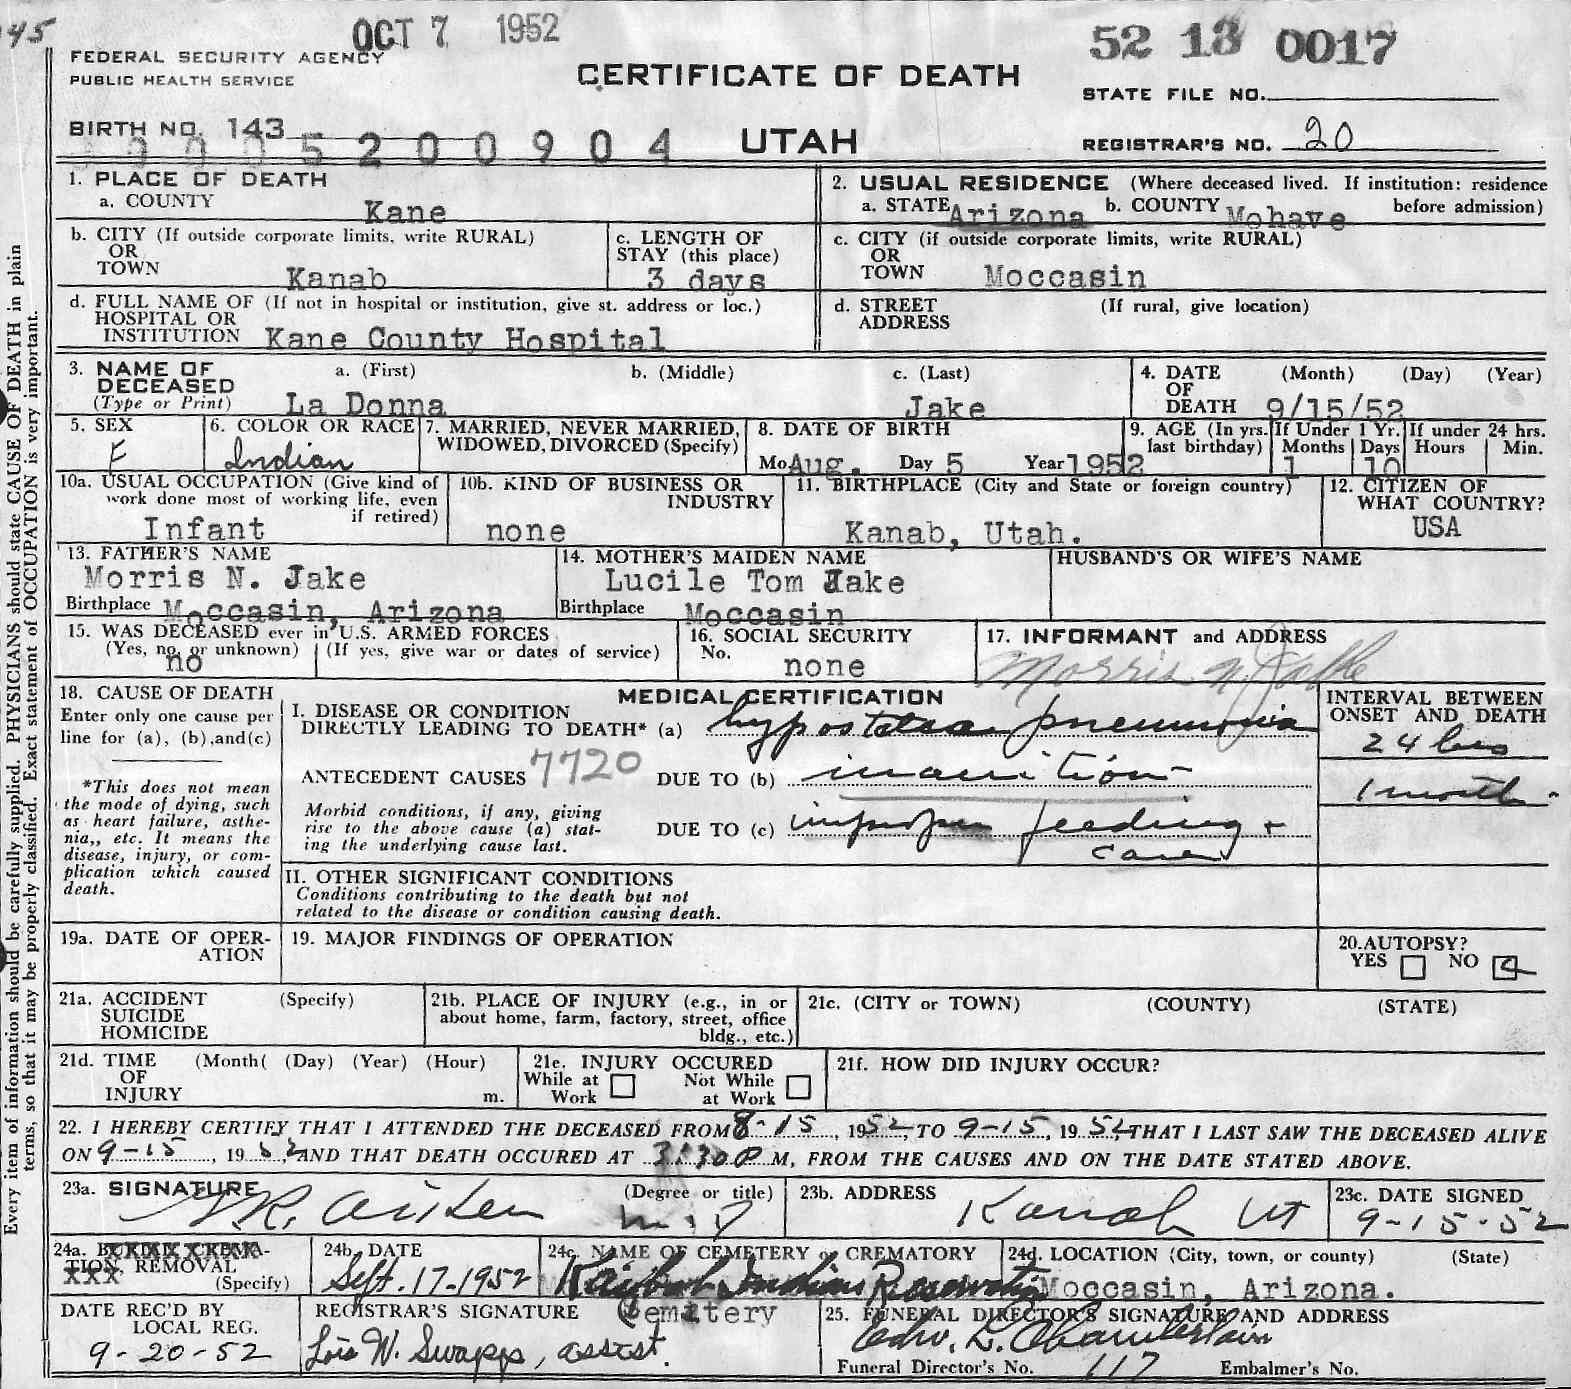 45
OCT 7 1952
52 18 0017
FEDERAL SECURITY AGENCY
PUBLIC HEALTH SERVICE
CERTIFICATE OF DEATH
STATE FILE NO.
BIRTH NO. 143
5200904
UTAH
REGISTRAR'S NO. 20
1. PLACE OF DEATH
a. COUNTY Kane
2. USUAL RESIDENCE (Where deceased lived. If institution: residence before admission)
a. STATE Arizona b. COUNTY Mohave
b. CITY (If outside corporate limits, write RURAL)
OR
TOWN Kanab
c. LENGTH OF
STAY (this place)
3 days
c. CITY (if outside corporate limits, write RURAL)
OR
TOWN Moccasin
d. FULL NAME OF (If not in hospital or institution, give st. address or loc.)
HOSPITAL OR
INSTITUTION Kane County Hospital
d. STREET (If rural, give location)
ADDRESS
3. NAME OF a. (First) b. (Middle) c. (Last)
DECEASED
(Type or Print) La Donna Jake
4. DATE (Month) (Day) (Year)
OF
DEATH 9/15/52
5. SEX
F
6. COLOR OR RACE
Indian
7. MARRIED, NEVER MARRIED,
WIDOWED, DIVORCED (Specify)
8. DATE OF BIRTH
Mo Aug. Day 5 Year 1952
9. AGE (In yrs. last birthday)
If Under 1 Yr.
Months Days
1 10
If under 24 hrs.
Hours Min.
10a. USUAL OCCUPATION (Give kind of
work done most of working life, even
if retired)
Infant
10b. KIND OF BUSINESS OR
INDUSTRY
none
11. BIRTHPLACE (City and State or foreign country)
Kanab, Utah.
12. CITIZEN OF
WHAT COUNTRY?
USA
13. FATHER'S NAME
Morris N. Jake
Birthplace Moccasin, Arizona
14. MOTHER'S MAIDEN NAME
Lucile Tom Jake
Birthplace Moccasin
HUSBAND'S OR WIFE'S NAME
15. WAS DECEASED ever in U.S. ARMED FORCES
(Yes, no, or unknown) (If yes, give war or dates of service)
no
16. SOCIAL SECURITY
No.
none
17. INFORMANT and ADDRESS
Morris N. Jake
18. CAUSE OF DEATH
Enter only one cause per
line for (a), (b), and (c)
*This does not mean
the mode of dying, such
as heart failure, asthe-
nia,, etc. It means the
disease, injury, or com-
plication which caused
death.
MEDICAL CERTIFICATION
I. DISEASE OR CONDITION
DIRECTLY LEADING TO DEATH* (a) hypostatic pneumonia
ANTECEDENT CAUSES 7720 DUE TO (b) inanition
Morbid conditions, if any, giving
rise to the above cause (a) stat-
ing the underlying cause last.
DUE TO (c) improper feeding +
care
INTERVAL BETWEEN
ONSET AND DEATH
24 hrs
1 month
II. OTHER SIGNIFICANT CONDITIONS
Conditions contributing to the death but not
related to the disease or condition causing death.
19a. DATE OF OPER-
ATION
19. MAJOR FINDINGS OF OPERATION
20. AUTOPSY?
YES NO
21a. ACCIDENT (Specify)
SUICIDE
HOMICIDE
21b. PLACE OF INJURY (e.g., in or
about home, farm, factory, street, office
bldg., etc.)
21c. (CITY or TOWN) (COUNTY) (STATE)
21d. TIME (Month( (Day) (Year) (Hour)
OF
INJURY m.
21e. INJURY OCCURED
While at Work Not While at Work
21f. HOW DID INJURY OCCUR?
22. I HEREBY CERTIFY THAT I ATTENDED THE DECEASED FROM 8-15, 1952, TO 9-15, 1952, THAT I LAST SAW THE DECEASED ALIVE
ON 9-15, 1952, AND THAT DEATH OCCURED AT 3:30 P M, FROM THE CAUSES AND ON THE DATE STATED ABOVE.
23a. SIGNATURE (Degree or title)
R. Aiken M.D
23b. ADDRESS
Kanab Ut
23c. DATE SIGNED
9-15-52
24a. BURIAL CREMA-
TION, REMOVAL
(Specify)
24b. DATE
Sept. 17-1952
24c. NAME OF CEMETERY or CREMATORY
Kaibab Indian Reservation
Cemetery
24d. LOCATION (City, town, or county) (State)
Moccasin, Arizona.
DATE REC'D BY
LOCAL REG.
9-20-52
REGISTRAR'S SIGNATURE
Lois W. Swapp, assist.
25. FUNERAL DIRECTOR'S SIGNATURE AND ADDRESS
Edw. L. Chamberlain
Funeral Director's No. 117 Embalmer's No.
Every item of information should be carefully supplied. PHYSICIANS should state CAUSE OF DEATH in plain
terms, so that it may be properly classified. Exact statement of OCCUPATION is very important.